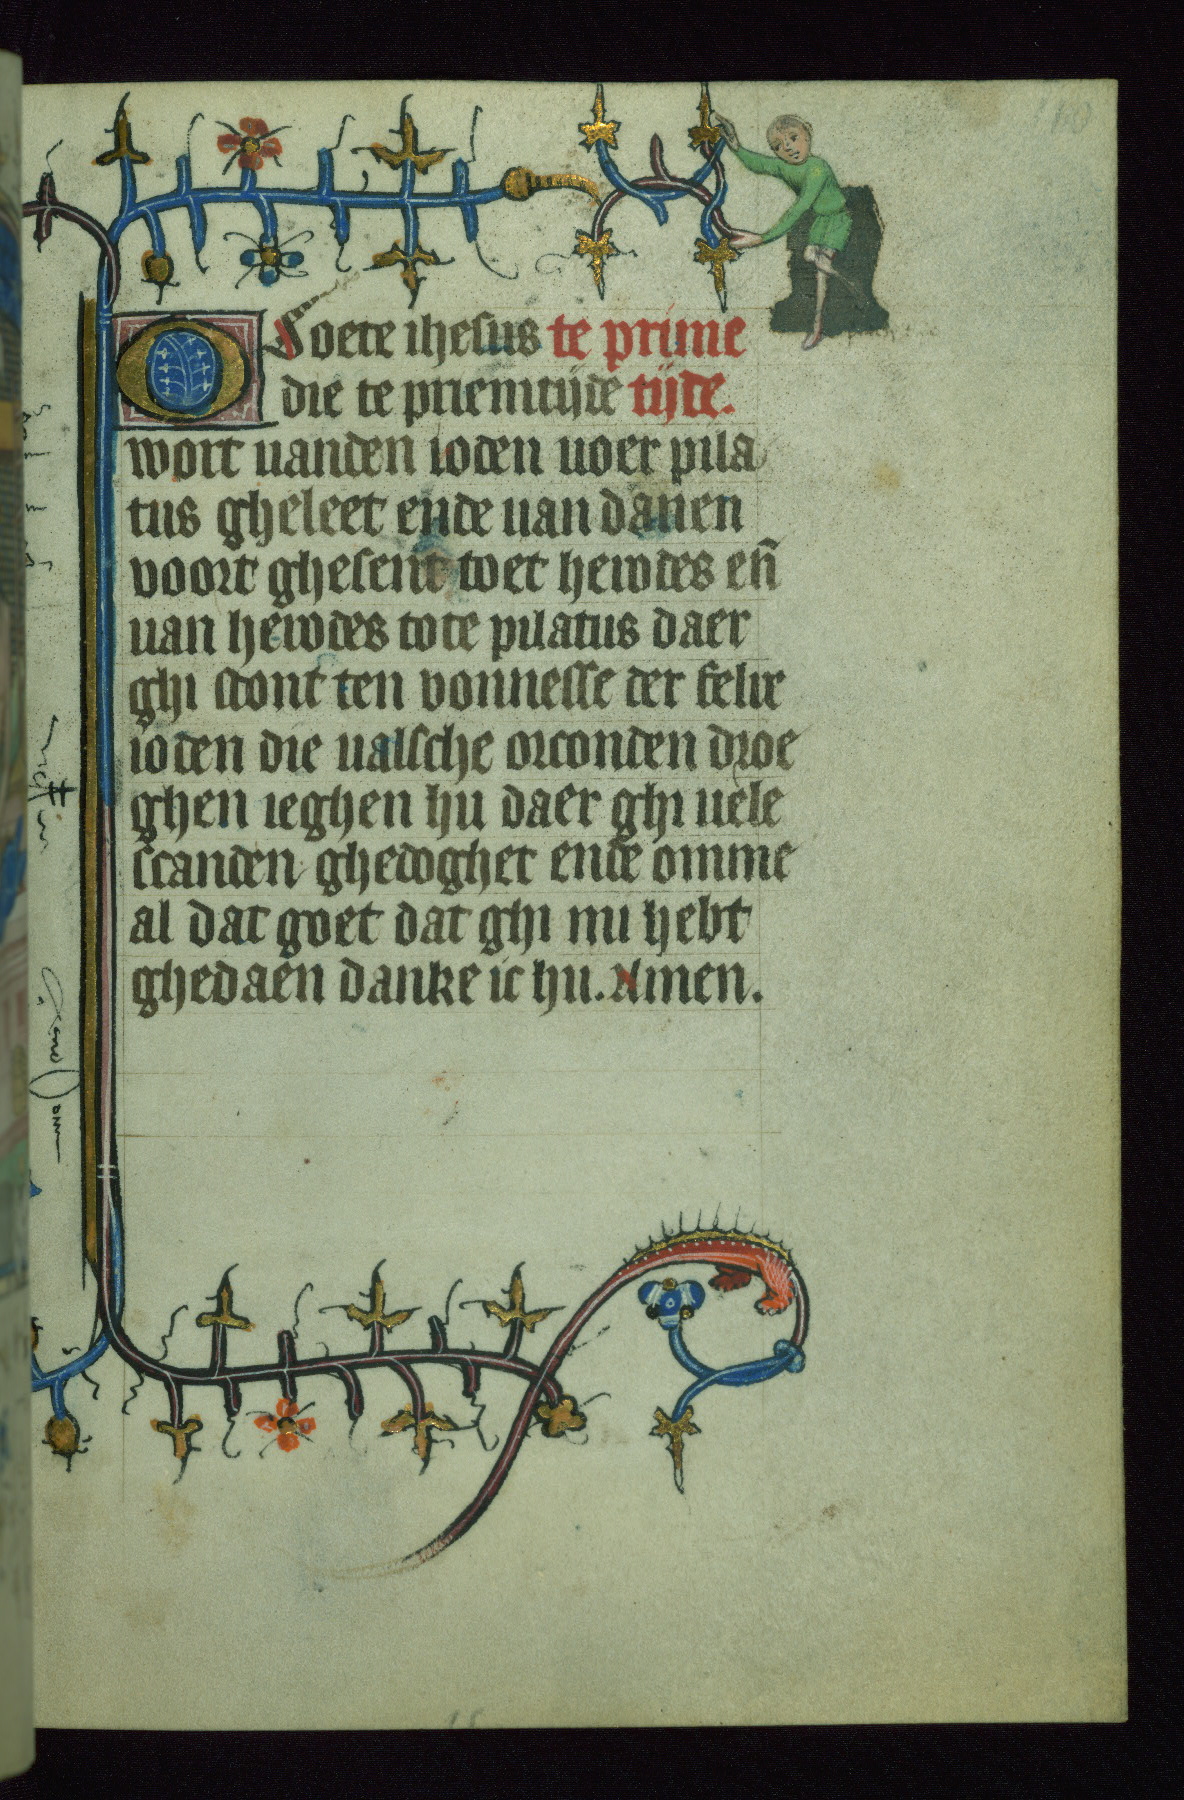 O Soete ihesus te prime
die te priemtijde tijde.
wort uanden ioden uoer pila
tus gheleet ende uan danen
voort ghesent toet herodes en̄
uan herodes tote pilatus daer
ghi stont ten vonnesse der felre
ioden die ualsche orconden droe
ghen ieghen hu daer ghi uele
scanden ghedoghet ende omme
al dat goet dat ghi mi hebt
ghedaen danke ic hu. Amen.